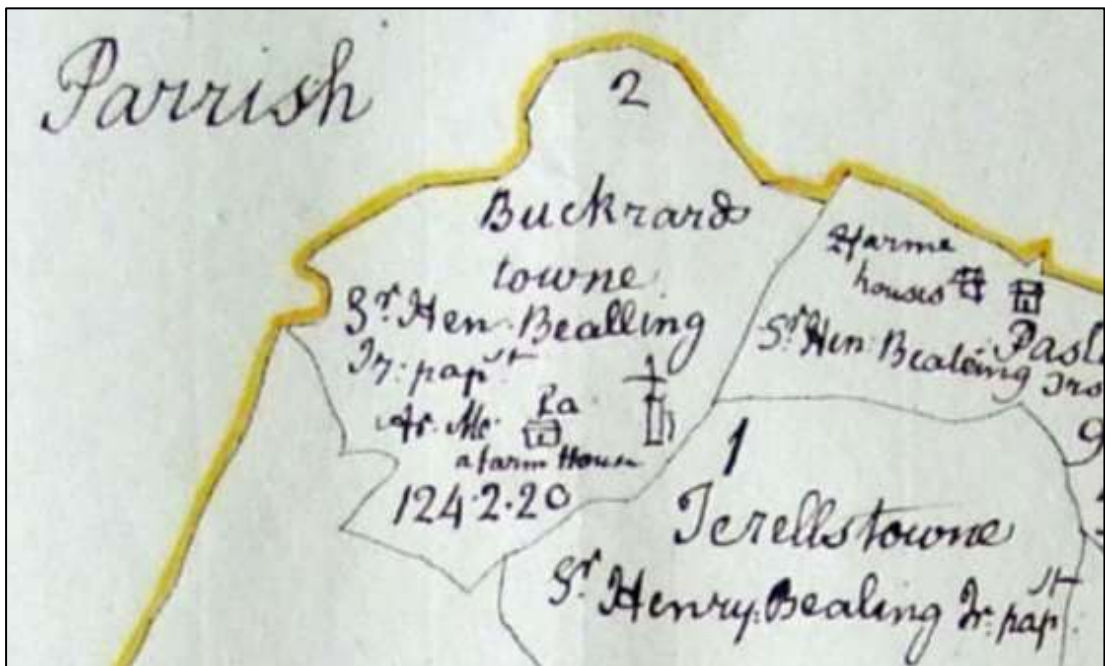 Parrish
2
Buckrards
towne
Sr. Hen: Bealling
Ir: papst
Ar. Me: Pa
a farm House
124.2.20
2 farme
houses
Sr. Hen: Bealeing Irs
Pasl
1
9
Terellstowne
Sr. Henry: Bealing Ir: papst